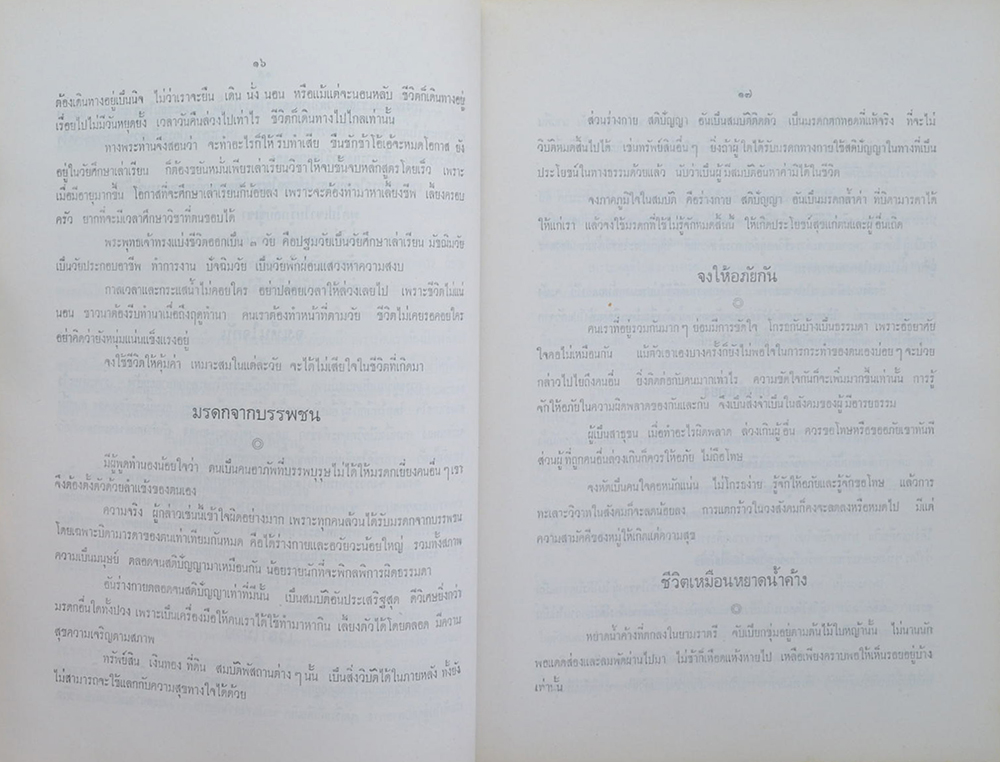 ๑๖
ต้องเดินทางอยู่เป็นนิจ ไม่ว่าเราจะยืน เดิน นั่ง นอน หรือแม้แต่จะนอนหลับ ชีวิตก็เดินทางอยู่
เรื่อยไปไม่มีวันหยุดยั้ง เวลาวันคืนล่วงไปเท่าไร ชีวิตก็เดินทางไปไกลเท่านั้น
ทางพระท่านจึงสอนว่า จะทำอะไรก็ให้รีบทำเสีย ขืนชักช้าโอ้เอ้จะหมดโอกาส ยัง
อยู่ในวัยศึกษาเล่าเรียน ก็ต้องขยันหมั่นเพียรเล่าเรียนวิชาให้จบชั้นจบหลักสูตรโดยเร็ว เพราะ
เมื่อมีอายุมากขึ้น โอกาสที่จะศึกษาเล่าเรียนก็น้อยลง เพราะจะต้องทำมาหาเลี้ยงชีพ เลี้ยงครอบ
ครัว ยากที่จะมีเวลาศึกษาวิชาที่ตนชอบได้
พระพุทธเจ้าทรงแบ่งชีวิตออกเป็น ๓ วัย คือปฐมวัยเป็นวัยศึกษาเล่าเรียน มัชฌิมวัย
เป็นวัยประกอบอาชีพ ทำการงาน ปัจฉิมวัย เป็นวัยพักผ่อนแสวงหาความสงบ
กาลเวลาและกระแสน้ำไม่คอยใคร อย่าปล่อยเวลาให้ล่วงเลยไป เพราะชีวิตไม่แน่
นอน ชาวนาต้องรีบทำนาเมื่อถึงฤดูทำนา คนเราต้องทำหน้าที่ตามวัย ชีวิตไม่เคยรอคอยใคร
อย่าคิดว่ายังหนุ่มแน่นแข็งแรงอยู่
จงใช้ชีวิตให้คุ้มค่า เหมาะสมในแต่ละวัย จะได้ไม่เสียใจในชีวิตที่เกิดมา
มรดกจากบรรพชน
มีผู้พูดทำนองน้อยใจว่า ตนเป็นคนอาภัพที่บรรพบุรุษไม่ได้ให้มรดกเยี่ยงคนอื่นๆเขา
จึงต้องตั้งตัวด้วยลำแข้งของตนเอง
ความจริง ผู้กล่าวเช่นนี้เข้าใจผิดอย่างมาก เพราะทุกคนล้วนได้รับมรดกจากบรรพชน
โดยเฉพาะบิดามารดาของตนเท่าเทียมกันหมด คือได้ร่างกายและอวัยวะน้อยใหญ่ รวมทั้งสภาพ
ความเป็นมนุษย์ ตลอดจนสติปัญญามาเหมือนกัน น้อยรายนักที่จะพิกลพิการผิดธรรมดา
อันร่างกายตลอดจนสติปัญญาเท่าที่มีนั้น เป็นสมบัติอันประเสริฐสุด ดีวิเศษยิ่งกว่า
มรดกอื่นใดทั้งปวง เพราะเป็นเครื่องมือให้คนเราได้ใช้ทำมาหากิน เลี้ยงตัวได้โดยตลอด มีความ
สุขความเจริญตามสภาพ
ทรัพย์สิน เงินทอง ที่ดิน สมบัติพัสถานต่างๆนั้น เป็นสิ่งวิบัติได้ในภายหลัง ทั้งยัง
ไม่สามารถจะใช้แลกกับความสุขทางใจได้ด้วย
๑๗
ส่วนร่างกาย สติปัญญา อันเป็นสมบัติติดตัว เป็นมรดกตกทอดที่แท้จริง ที่จะไม่
วิบัติหมดสิ้นไปได้ เช่นทรัพย์สินอื่นๆ ยิ่งถ้าผู้ใดได้รับมรดกทางการใช้สติปัญญาในทางที่เป็น
ประโยชน์ในทางธรรมด้วยแล้ว นับว่าเป็นผู้มีสมบัติอนาคามีได้ในชีวิต
จงภาคภูมิใจในสมบัติ คือร่างกาย สติปัญญา อันเป็นมรดกล้ำค่า ที่บิดามารดาได้
ให้แก่เรา แล้วจงใช้มรดกที่ใช้ไม่รู้จักหมดสิ้นนี้ ให้เกิดประโยชน์สุขแก่ตนและผู้อื่นเถิด
จงให้อภัยกัน
คนเราที่อยู่รวมกันมากๆ ย่อมมีการขัดใจ โกรธกันบ้างเป็นธรรมดา เพราะอัธยาศัย
ใจคอไม่เหมือนกัน แม้ตัวเราเองบางครั้งก็ยังไม่พอใจในการกระทำของตนเองบ่อยๆ จะป่วย
กล่าวไปไยถึงคนอื่น ยิ่งติดต่อกับคนมากเท่าไร ความขัดใจกันก็จะเพิ่มมากขึ้นเท่านั้น การรู้
จักให้อภัยในความผิดพลาดของกันและกัน จึงเป็นสิ่งจำเป็นในสังคมของผู้มีอารยธรรม
ผู้เป็นสาธุชน เมื่อทำอะไรผิดพลาด ล่วงเกินผู้อื่น ควรขอโทษหรือขออภัยเขาทันที
ส่วนผู้ที่ถูกคนอื่นล่วงเกินก็ควรให้อภัย ไม่ถือโทษ
จงหัดเป็นคนใจคอหนักแน่น ไม่โกรธง่าย รู้จักให้อภัยและรู้จักขอโทษ แล้วการ
ทะเลาะวิวาทในสังคมก็จะลดน้อยลง การแตกร้าวในวงสังคมก็คงจะลดลงหรือหมดไป มีแต่
ความสามัคคีของหมู่ให้เกิดแต่ความสุข
ชีวิตเหมือนหยาดน้ำค้าง
หยาดน้ำค้างที่ตกลงในยามราตรี จับเปียกชุ่มอยู่ตามต้นไม้ใบหญ้านั้น ไม่นานนัก
พอแดดส่องและลมพัดผ่านไปมา ไม่ช้าก็เหือดแห้งหายไป เหลือเพียงคราบพอให้เห็นรอยอยู่บ้าง
เท่านั้น